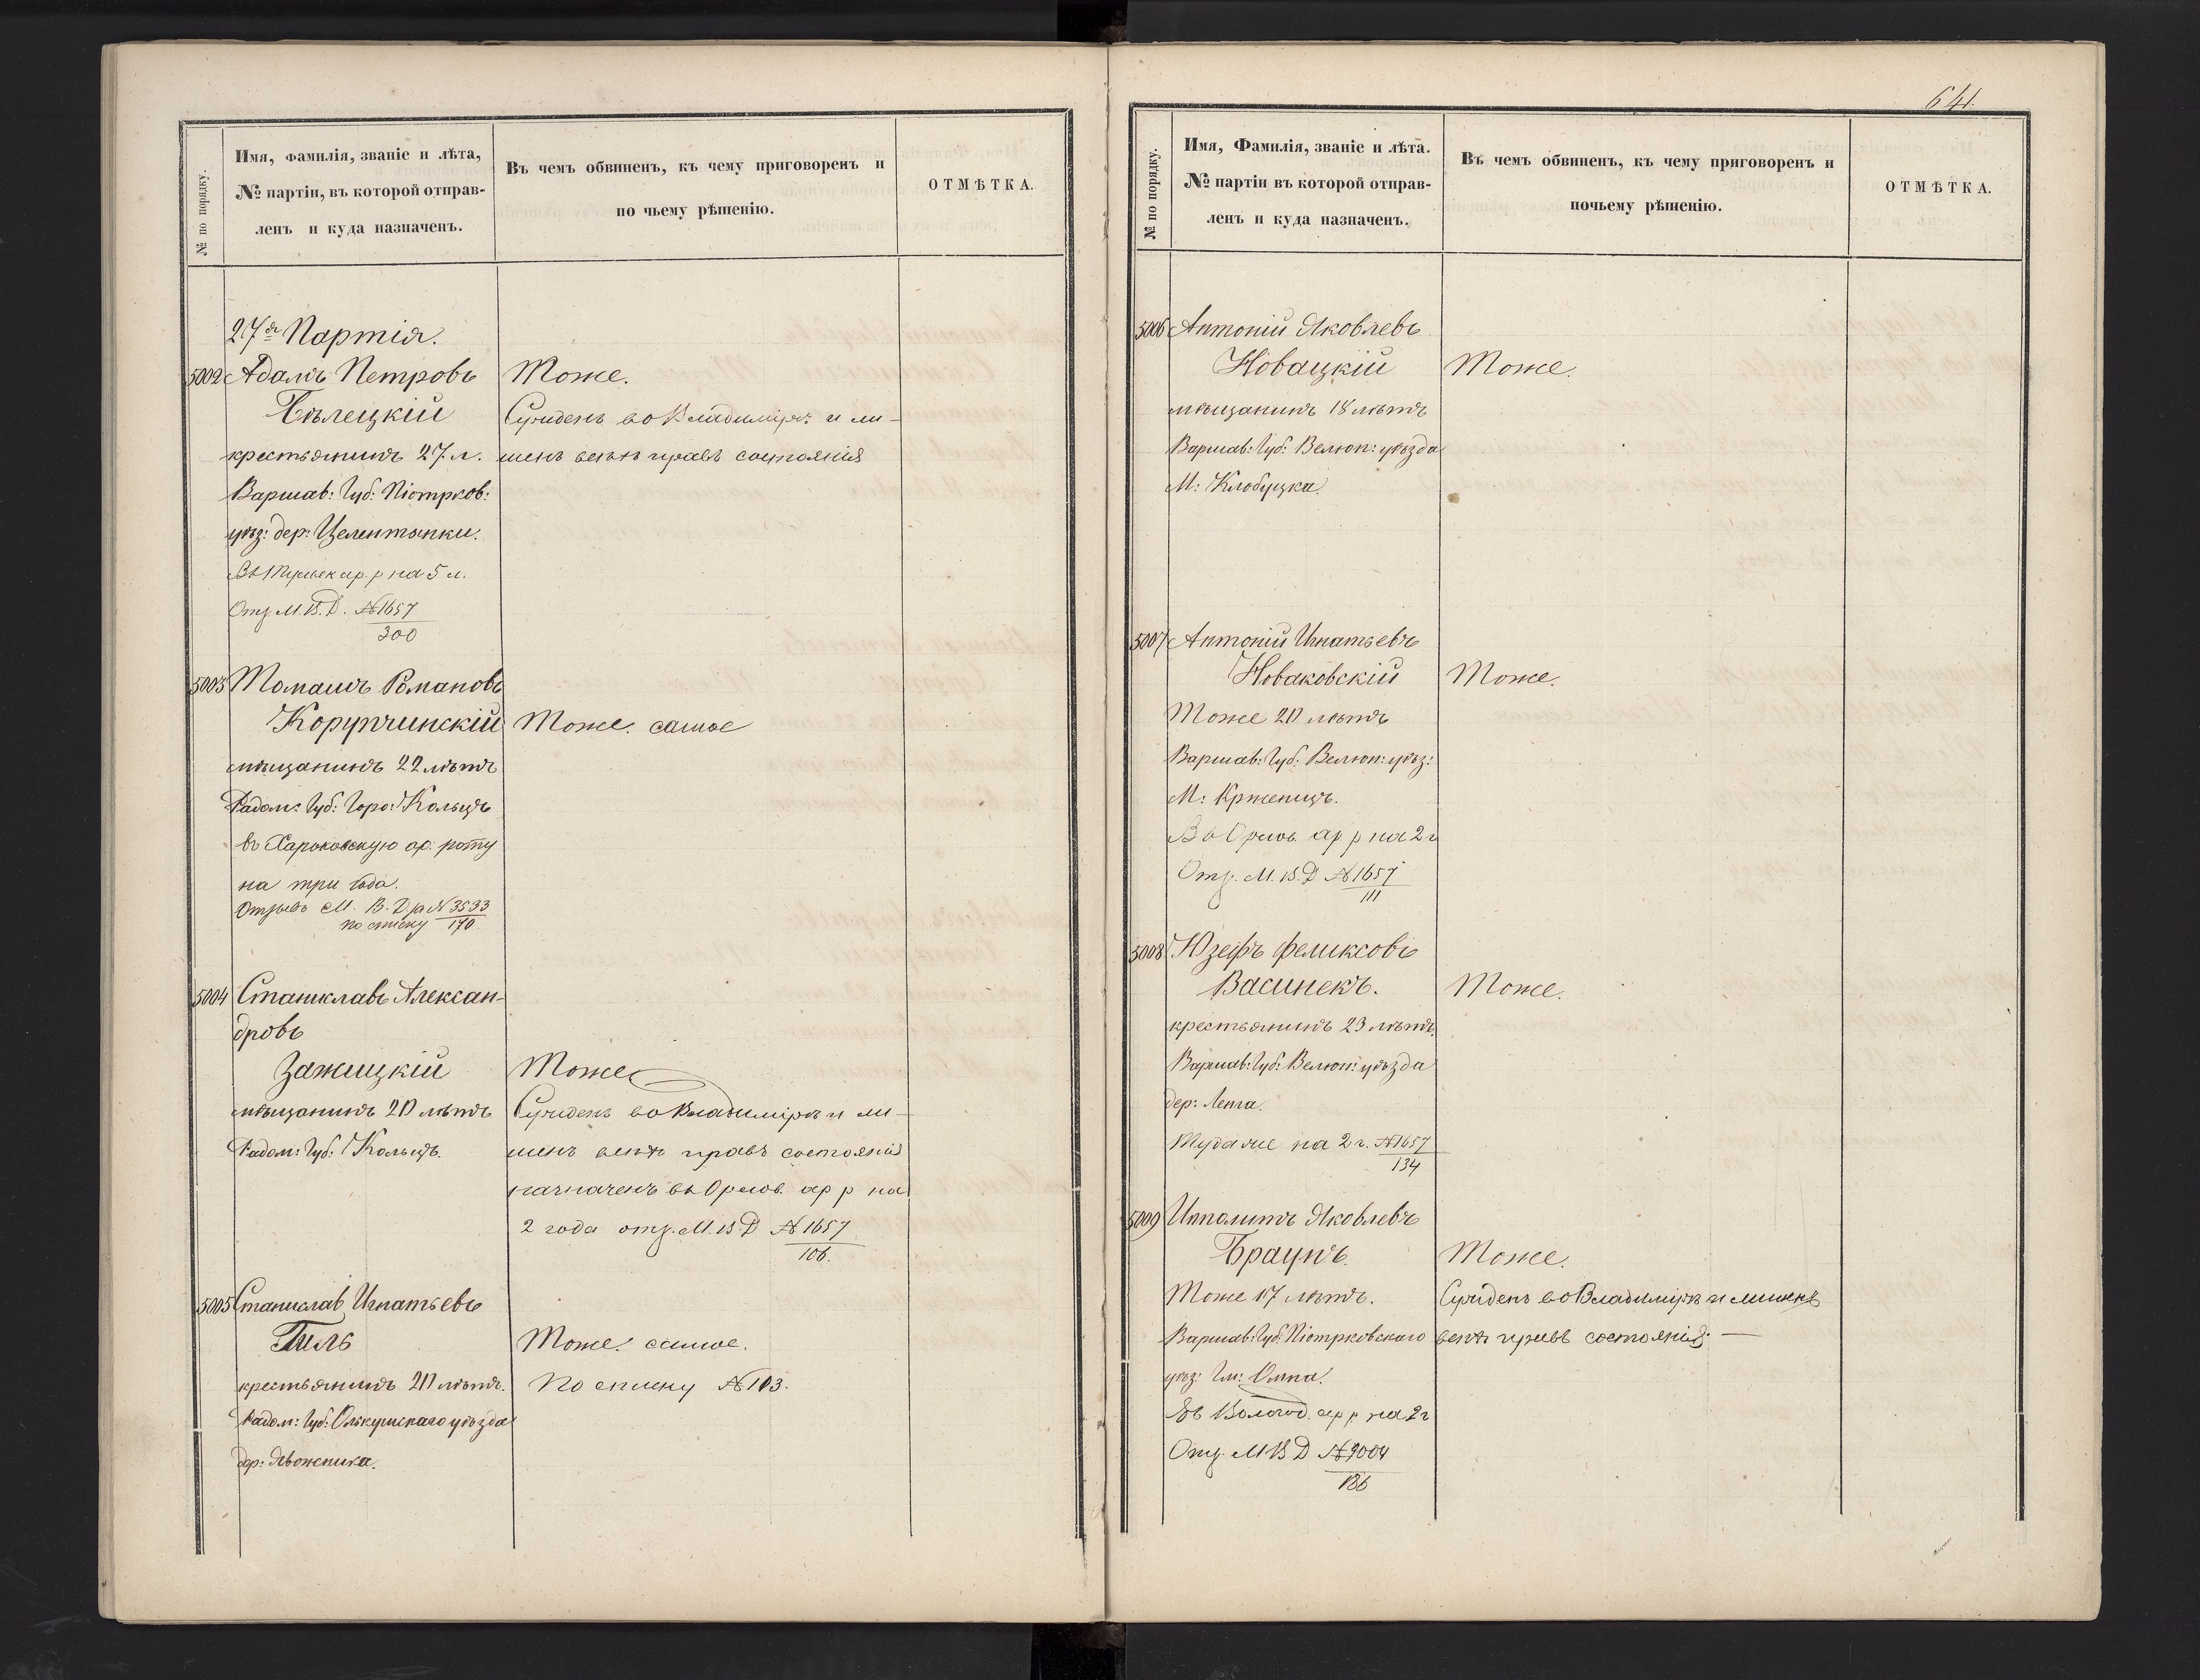 № по порядку.
Имя, фамилія, званіе и лѣта,
№ партіи, въ которой отправ-
ленъ и куда назначенъ.
Въ чемъ обвиненъ, къ чему приговоренъ и
по чьему рѣшенію.
ОТМѢТКА.
27я Партія.
5002 Адамъ Петровъ
Бѣлецкій
крестьянинъ 27 л.
Варшав: Губ: Піотрков:
уѣз: дер: Целентынки.
ар. р на 5 л.
Отз. М. В. Д. №1657
300
Тоже.
Сужденъ во Владимірѣ и ли-
шенъ всѣхъ правъ состоянія
5003 Томашъ Романовъ
Корупчинскій
мѣщанинъ 22 лѣтъ
Радом: Губ: Горо: Кѣльцъ
въ Харьковскую ар. роту
на три года.
Отзывъ М. В. Дѣ №3533
по списку 170.
Тоже самое
5004 Станиславъ Алексан-
дровъ
Зажицкій
мѣщанинъ 20 лѣтъ
Радом: Губ: Кѣльцъ.
Тоже
Сужденъ во Владимірѣ и ли-
шенъ всѣхъ правъ состоянія
назначенъ въ Орлов. ар р на
2 года отз. М. В Д №1657
106.
5005 Станиславъ Игнатьевъ
Гиль
крестьянинъ 20 лѣтъ.
Радом: Губ: Олькушскаго уѣзда
дер:
Тоже самое.
По списку № 103.
641.
№ по порядку.
Имя, Фамилія, званіе и лѣта.
№ партіи въ которой отправ-
ленъ и куда назначенъ.
Въ чемъ обвиненъ, къ чему приговоренъ и
почьему рѣшенію.
ОТМѢТКА.
5006 Антоній Яковлевъ
Новацкій
мѣщанинъ 18 лѣтъ
Варшав: Губ: Велюн: уѣзда
М: Клобуцка.
Тоже.
5007 Антоній Игнатьевъ
Новаковскій
Тоже 20 лѣтъ
Варшав: Губ: Велюн: уѣз:
М: Крженицъ.
Въ Орлов. ар р на 2 г
Отз. М. В. Д №1657
111
Тоже.
5008 Юзефъ Феликсовъ
Васинекъ.
крестьянинъ 23 лѣтъ.
Варшав: Губ: Велюн: уѣзда
дер:
Туда же на 2 г. №1657
134
Тоже.
5009 Ипполитъ Яковлевъ
Браунъ.
Тоже 17 лѣтъ.
Варшав: Губ: Піотрковскаго
уѣз: Гм:
Въ Вологод. ар р на 2 г
Отз. М В Д №9004
186
Тоже.
Сужденъ во Владимірѣ и лишенъ
всѣхъ правъ состоянія. —